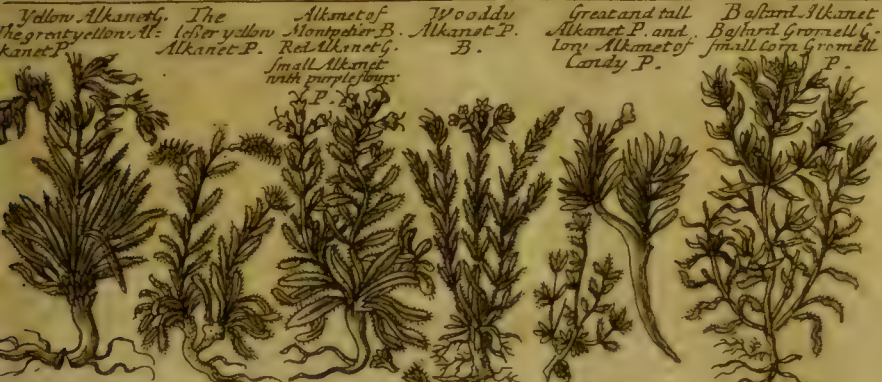 Yellow Alkanet G.
The great yellow Al=
kanet P.
The
leſser yellow
Alkanet P.
Alkanet of
Montpelier B.
Red Alkanet G.
Small Alkanet
with purple flours
P.
Wooddy
Alkanet P.
B.
Great and tall
Alkanet P. and
low Alkanet of
Candy P.
Baſtard Alkanet
Baſtard Gromell G.
ſmall Corn Gromell
P.